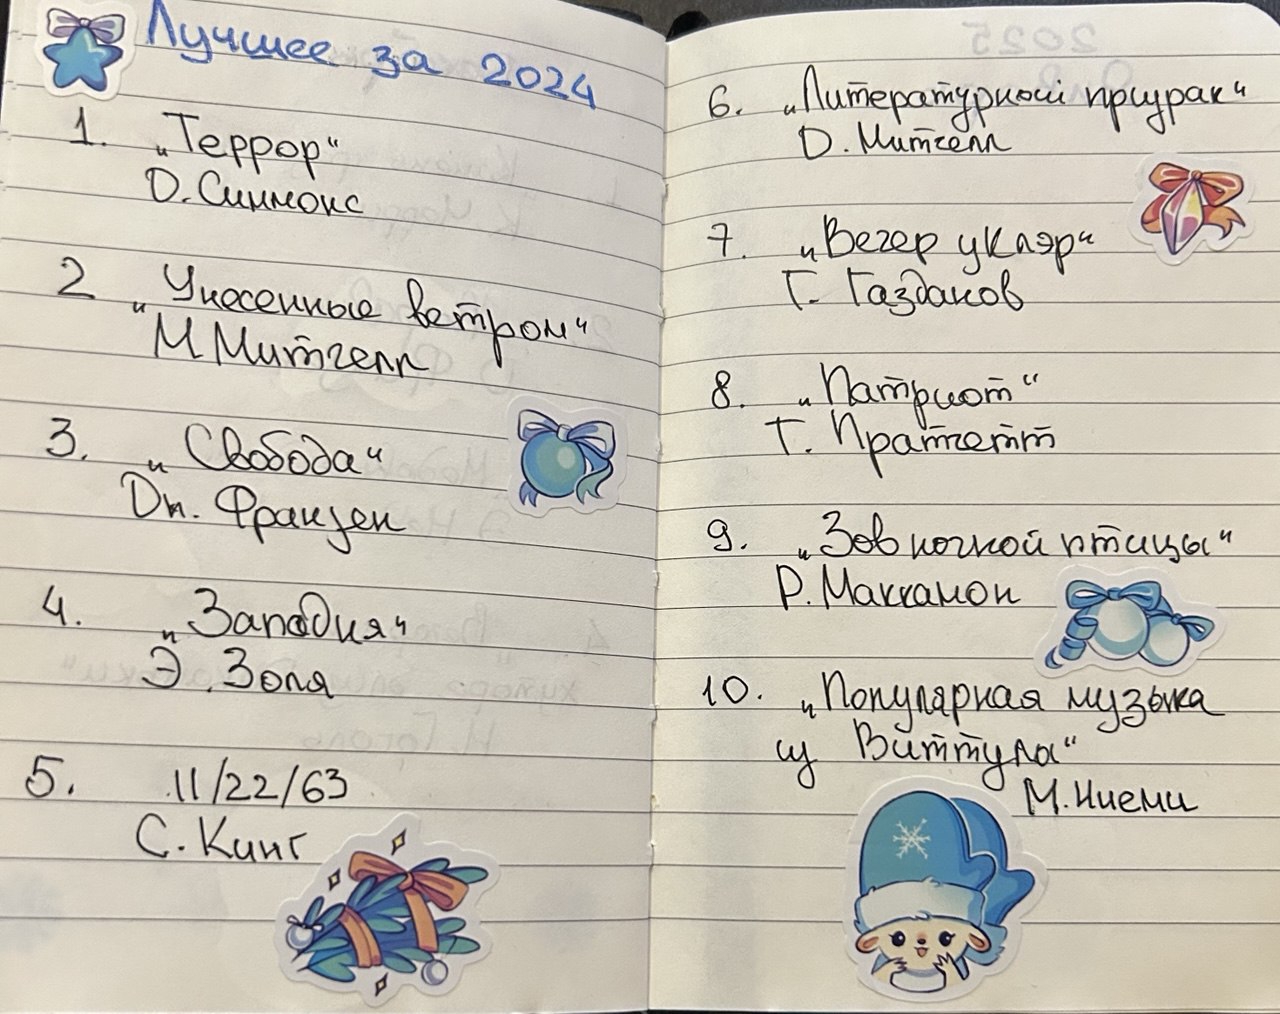 Лучшее за 2024
1. „Террор“
Д. Симмонс
2 „Унесенные ветром“
М Митчелл
3. „Свобода“
Дж. Франзен
4. „Западня“
Э. Золя
5. 11/22/63
С. Кинг
6. „Литературный призрак“
Д. Митчелл
7. „Вечер у Клэр“
Г. Газданов
8. „Патриот“
Т. Пратчетт
9. „Зов ночной птицы“
Р. Маккамон
10. „Популярная музыка
из Виттула“
М. Ниеми
2025